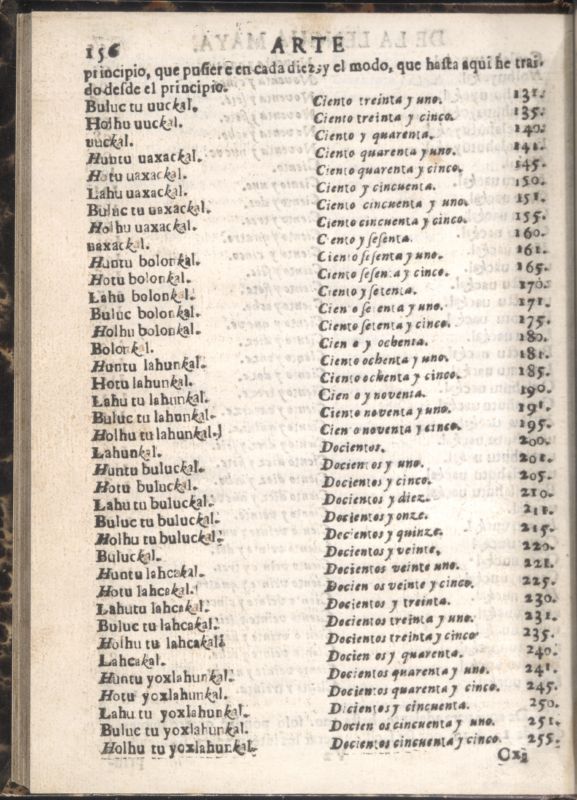 156 ARTE
principio, que pusiere en cada diez; y el modo, que hasta aqui he trai-
do desde el principio.
Buluc tu uuckal. Ciento treinta y uno. 131.
Holhu uuckal. Ciento treinta y cinco. 135.
uuckal. Ciento y quarenta. 140.
Huntu uaxackal. Ciento quarenta y uno. 141.
Hotu uaxackal. Ciento quarenta y cinco. 145.
Lahu uaxackal. Ciento y cincuenta. 150.
Buluc tu uaxackal. Ciento cincuenta y uno. 151.
Holhu uaxackal. Ciento cincuenta y cinco. 155.
uaxackal. Ciento y sesenta. 160.
Huntu bolonkal. Ciento sesenta y uno. 161.
Hotu bolonkal. Ciento sesenta y cinco. 165.
Lahu bolonkal. Ciento y setenta. 170.
Buluc bolonkal. Ciento setenta y uno. 171.
Holhu bolonkal. Ciento setenta y cinco. 175.
Bolonkal. Ciento y ochenta. 180.
Huntu lahunkal. Ciento ochenta y uno. 181.
Hotu lahunkal. Ciento ochenta y cinco. 185.
Lahu tu lahunkal. Ciento y noventa. 190.
Buluc tu lahunkal. Ciento noventa y uno. 191.
Holhu tu lahunkal. Ciento noventa y cinco. 195.
Lahunkal. Docientos. 200.
Huntu buluckal. Docientos y uno. 201.
Hotu buluckal. Docientos y cinco. 205.
Lahu tu buluckal. Docientos y diez. 210.
Buluc tu buluckal. Docientos y onze. 211.
Holhu tu buluckal. Docientos y quinze. 215.
Buluckal. Docientos y veinte. 220.
Huntu lahcakal. Docientos veinte uno. 221.
Hotu lahcakal. Docientos veinte y cinco. 225.
Lahutu lahcakal. Docientos y treinta. 230.
Buluc tu lahcakal. Docientos treinta y uno. 231.
Holhu tu lahcakal. Docientos treinta y cinco 235.
Lahcakal. Docientos y quarenta. 240.
Huntu yoxlahunkal. Docientos quarenta y uno. 241.
Hotu yoxlahunkal. Docientos quarenta y cinco. 245.
Lahu tu yoxlahunkal. Dicientos y cincuenta. 250.
Buluc tu yoxlahunkal. Docientos cincuenta y uno. 251.
Holhu tu yoxlahunkal. Docientos cincuenta y cinco. 255.